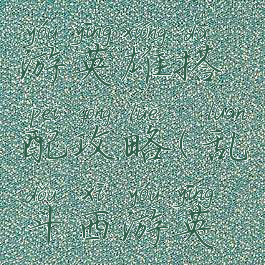 yóu yīng xióng dā
游英雄搭
pèi gōng lüè luàn
配攻略(乱
dòu xī yóu yīng
斗西游英